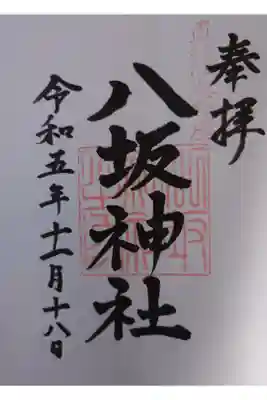 奉拝
八坂神社
令和五年十一月十八日